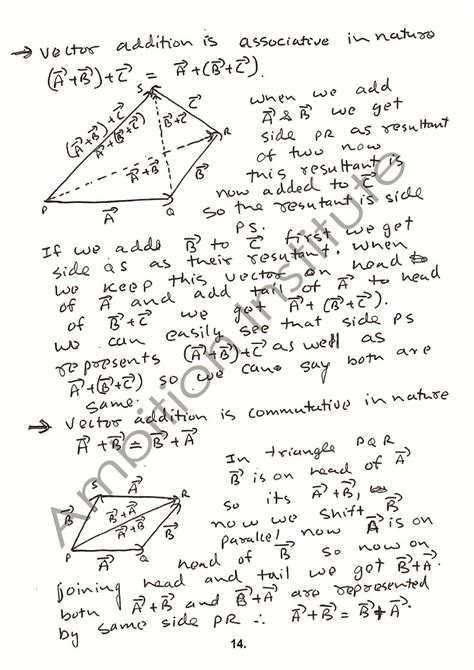 → Vector addition is associative in nature
(A⃗+B⃗)+C⃗ = A⃗+(B⃗+C⃗).
S
C⃗
(A⃗+B⃗)+C⃗
A⃗+(B⃗+C⃗)
B⃗+C⃗
R
A⃗+B⃗
B⃗
P
A⃗
Q
when we add
A⃗ & B⃗ we get
side PR as resultant
of two now
this resultant is
now added to C⃗
so the resutant is side
PS.
If we adds B⃗ to C⃗ first we get
side QS as their resutant. when
we keep this vector on head
of A⃗ and add tail of A⃗ to head
of B⃗+C⃗ we get A⃗+(B⃗+C⃗).
we can easily see that side PS
represents (A⃗+B⃗)+C⃗ as well as
A⃗+(B⃗+C⃗) so we can say both are
same.
→ Vector addition is commutative in nature
A⃗+B⃗ = B⃗+A⃗
S
A⃗
R
B⃗
B⃗+A⃗
A⃗+B⃗
B⃗
P
A⃗
Q
In triangle PQR
B⃗ is on head of A⃗
so its A⃗+B⃗,
now we shift B⃗
parallel now A⃗ is on
head of B⃗ so now on
joining head and tail we get B⃗+A⃗.
both A⃗+B⃗ and B⃗+A⃗ are represented
by same side PR ∴ A⃗+B⃗ = B⃗+A⃗.
14.
Ambition Institute